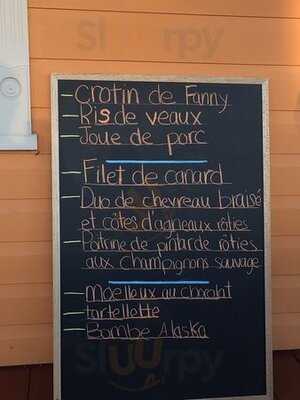 Crotin de Fanny
Ris de veaux
Joue de porc
Filet de canard
Duo de chevreau braisé
et côtes d'agneaux rôties
Poitrine de pintarde rôties
aux Champignons sauvage
Moelleux au chocolat
tartellette
Bombe Alaska
Sluurpy
Sluurpy